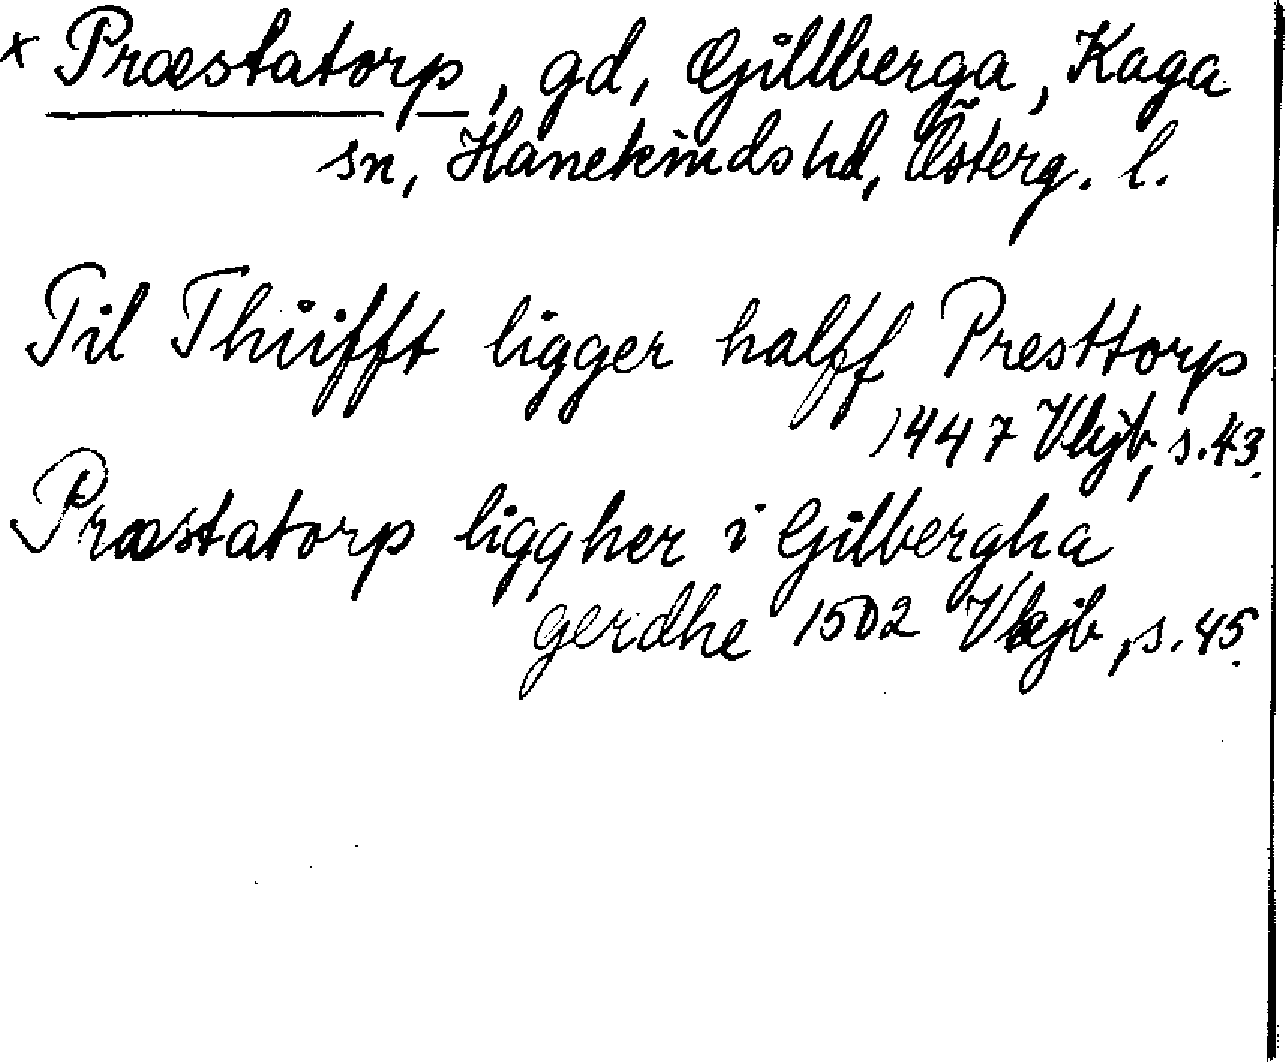 x Præstatorp, gd, Gillberga, Kaga
sn, Hanekinds hd, Österg. l.
Til Thiifft ligger halff Presttorp
1447 Vkjb, s. 43.
Præstatorp liggher i Gilbergha
gerdhe 1502 Vkjb, s. 45.